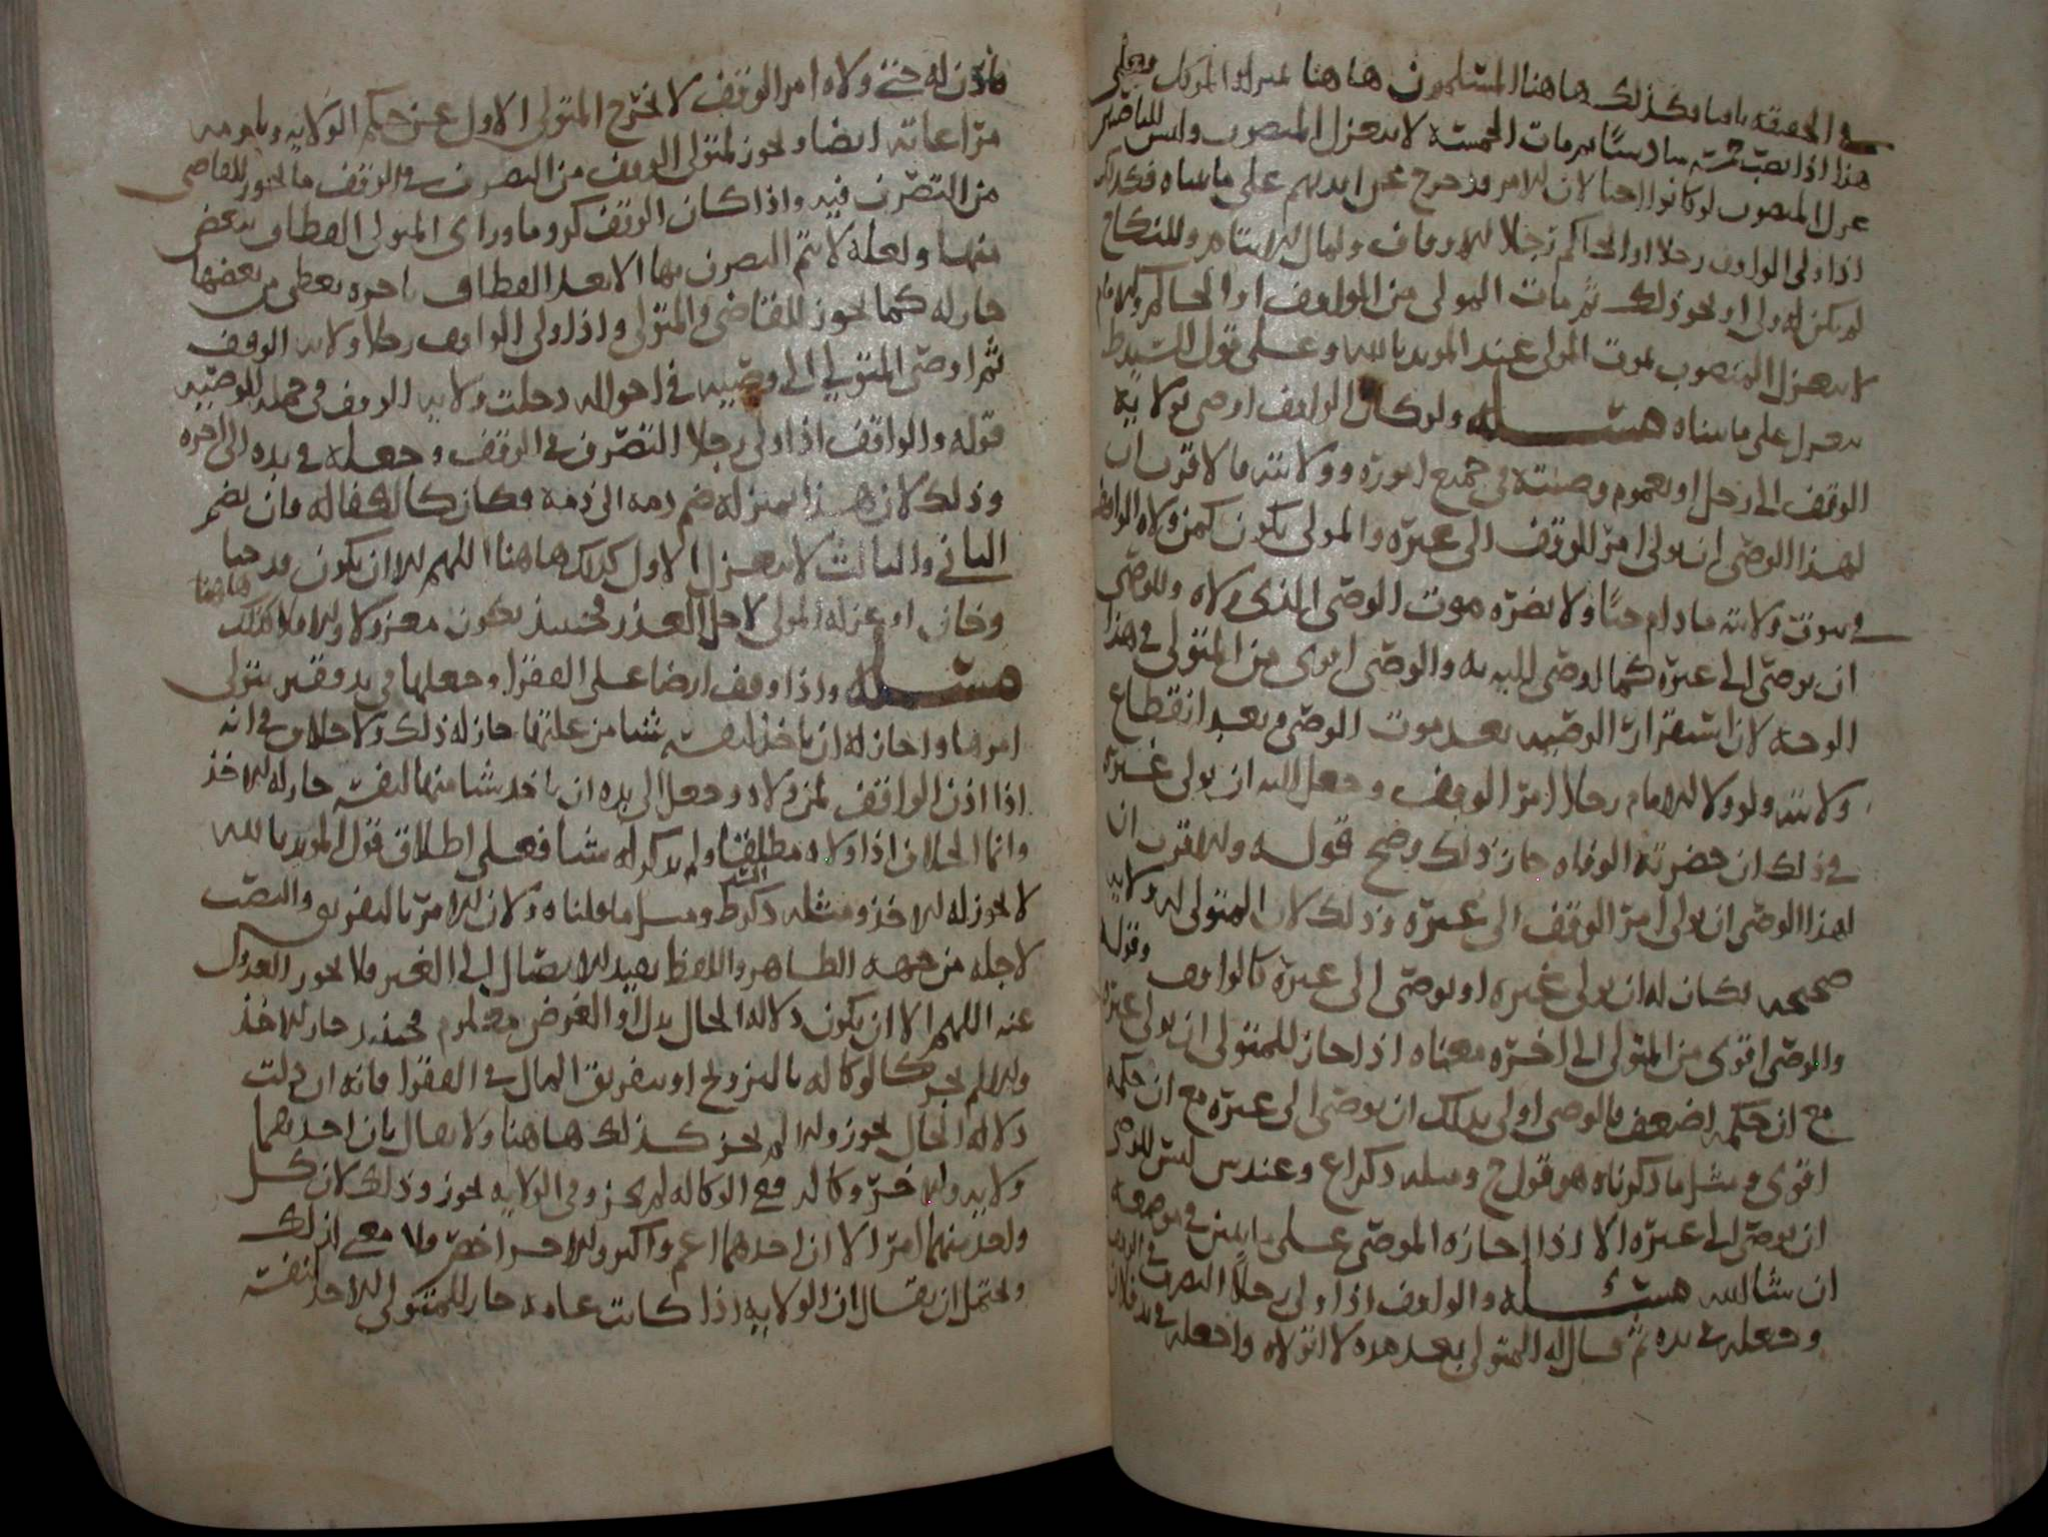 في الحقيقة باقيا فكذلك هاهنا المسلمون هاهنا بمنزلة الموكل فعلى
هذا اذا نصب خمسة سادسًا ثم مات الخمسة لا ينعزل المنصوب وليس للناصبين
عزل المنصوب لو كانوا احيا لان الامر قد خرج عن ايديهم على ما بيناه فكذلك
اذا ولى الواقف رجلا او الحاكم رجلا للاوقاف ولمال الايتام وللنكاح
لم يكن له ولي او نحو ذلك ثم مات المولي من الواقف او الحاكم والامام
لا ينعزل المنصوب بموت المولي عند المويد بالله وعلى قول السيد ط
ينعزل على ما بيناه مسئلة ولو كان الواقف اوصى بولاية
الوقف الى رجل او بعموم وصيته في جميع اموره وولايته فالاقرب ان
لهذا الوصي ان يولي امر الوقف الى غيره والمولى يكون كمن ولاه الواقف
في ثبوت ولايته ما دام حيًا ولا يضره موت الوصي الذي ولاه وللوصي
ان يوصي الى غيره كما اوصى اليه به والوصي اقوى من المتولي في هذا
الوجه لان استقرار الوصية بعد موت الوصي وبعد انقطاع
ولايته ولو ولا الامام رجلا امر الوقف وجعل اليه ان يولي غيره
في ذلك ان حضرته الوفاه جاز ذلك وصح قوله والاقرب ان
لهذا الوصي ان يولي امر الوقف الى غيره وذلك لان المتولي له ولاية
صحيحه فكان له ان يولي غيره او يوصي الى غيره كالواقف وقوله
والوصي اقوى من المتولي الى اخره معناه اذا جاز للمتولي ان يولي غيره
مع ان حكمه اضعف فالوصي اولى بذلك ان يوصي الى غيره مع ان حكمه
اقوى ومثل ما ذكرناه هو قول ح ومثله ذكر ع وعند س ليس للوصي
ان يوصي الى غيره الا اذا اجازه الموصي على ما يبين في موضعه
ان شا الله مسئلة والواقف اذا ولى رجلًا التصرف في الوقف
وجعله في يده ثم قال له المتولي بعد مده لا اتولاه واجعله في يد فلان
فاذن له حتى ولاه امر الوقف لا يخرج المتولي الاول عن حكم الولاية ويلزمه
مراعاته ايضا ويجوز لمتولي الوقف من التصرف في الوقف ما يجوز للقاضي
من التصرف فيه واذا كان الوقف كروما وراى المتولي القطاف بعض
منها ولعله لا يتم التصرف بها الا بعد القطاف باجره يعطى من بعضها
جاز له كما يجوز للقاضي والمتولي واذا ولى الواقف رجلا ولاية الوقف
ثم اوصى المتولي الى وصيه في احواله دخلت ولاية الوقف في جملة الوصيه
قوله والواقف اذا ولى رجلا التصرف في الوقف وجعله في يده الى اخره
وذلك لان هذا بمنزلة ضم ذمه الى ذمه فكان كالكفاله فان بضم
الثاني والثالث لا ينعزل الاول كذلك هاهنا اللهم الا ان يكون قد جنا
وخان او عزله المولي لاجل العذر فحينئذ يكون معزولا والا فلا كذلك هاهنا
مسئلة واذا وقف ارضا على الفقرا وجعلها في يد فقير يتولى
امرها واجاز له ان ياخذ لنفسه شيا من غلتها جاز له ذلك ولا خلاف في انه
اذا اذن الواقف لمن ولاه وجعل الى يده ان ياخذ شيا منها لنفسه جاز له الاخذ
وانما الخلاف اذا ولاه مطلقا ولم يذكر له شيا فعلى اطلاق قول المويد بالله
لا يجوز له الاخذ ومثله ذكر السيد ط ومثل ما قلناه ولان الامر بالتفريق والنصب
لاجله من جهة الظاهر واللفظ يفيد الايصال الى الغير فلا يجوز العدول
عنه اللهم الا ان يكون دلالة الحال يدل او الغرض معلوم فحينئذ جاز الاخذ
والا لم يجز كالوكاله بالتزويج او بتفريق المال في الفقرا فانه ان دلت
دلالة الحال يجوز والا لم يجز كذلك هاهنا ولا يقال بان احدهما
ولايه والاخر وكاله ففي الوكاله لم يجز وفي الولايه يجوز وذلك لان كل
واحد منهما امر الا ان احدهما اعم واكبر والاخر اخص فلا معنى لذلك
ويحتمل ان يقال ان الولايه اذا كانت عامه جاز للمتولي الاخذ لنفسه